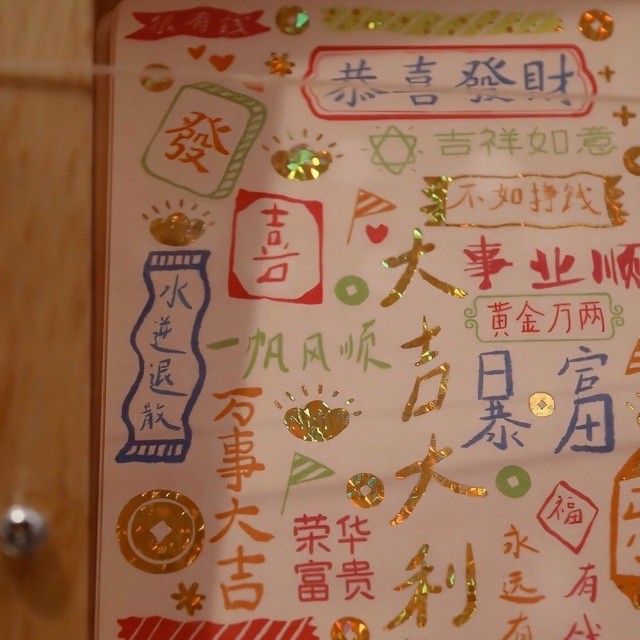 恭喜發財
發
吉祥如意
不如挣钱
喜
事业顺
大吉大利
黄金万两
水逆退散
一帆风顺
暴富
万事大吉
荣华富贵
福
永远有
有钱